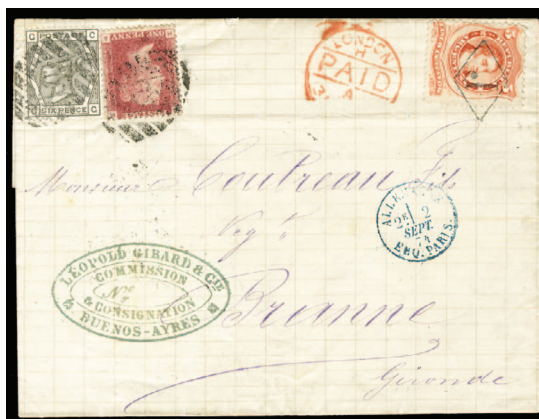 POSTAGE
SIX PENCE
ONE PENNY
LONDON
H
PAID
A
Monsieur Coutreau Fils
Neg t
2E 2
SEPT.
PARIS.
LÉOPOLD GIRARD & CIE
COMMISSION
No
& CONSIGNATION
BUENOS-AYRES
Brianne
Gironde